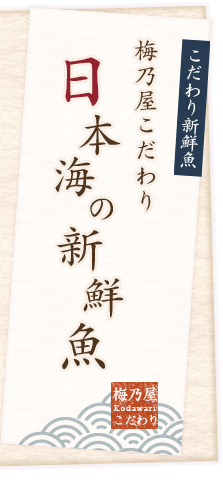 こだわり新鮮魚
梅乃屋こだわり
日本海の新鮮魚
梅乃屋
Kodawari
こだわり